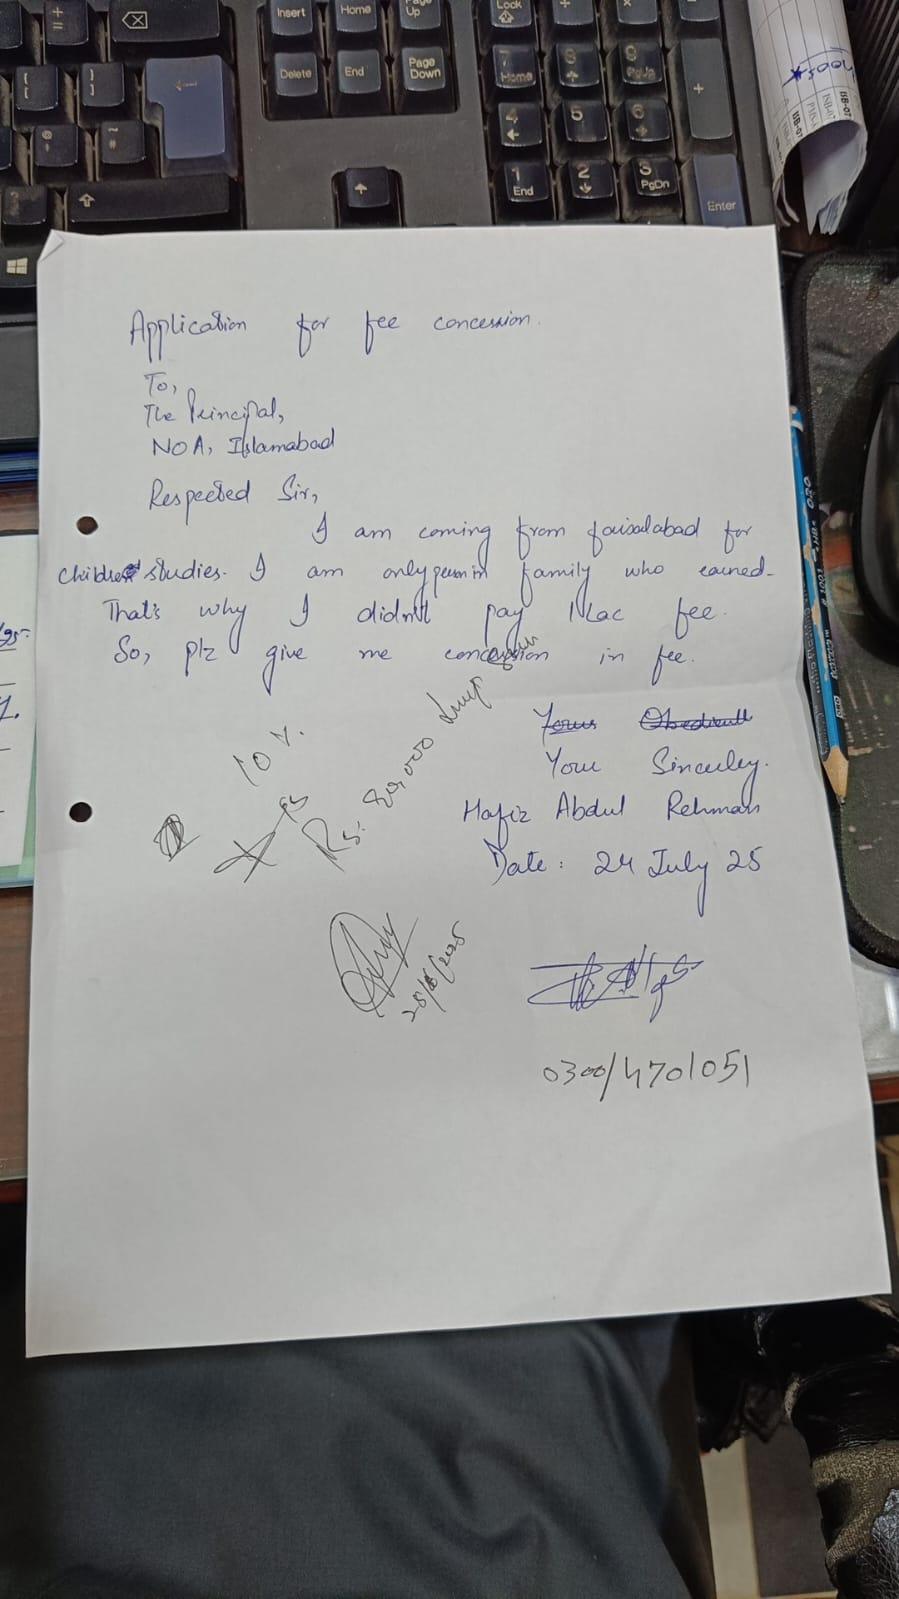 Application for fee concession.
To,
The Principal,
NOA, Islamabad
Respected Sir,
I am coming from faisalabad for
children studies. I am only person in family who earned.
That's why I didn't pay 1 lac fee.
So, plz give me concession in fee.
10 %.
Rs. 80,000 lump sum
Yours Obedient
Your Sincerley.
Hafiz Abdul Rehman
Date: 24 July 25
0300/4701051
Insert
Home
Page Up
Lock
Delete
End
Page Down
7 Home
8
9 PgUp
+
4
5
6
1 End
2
3 PgDn
Enter